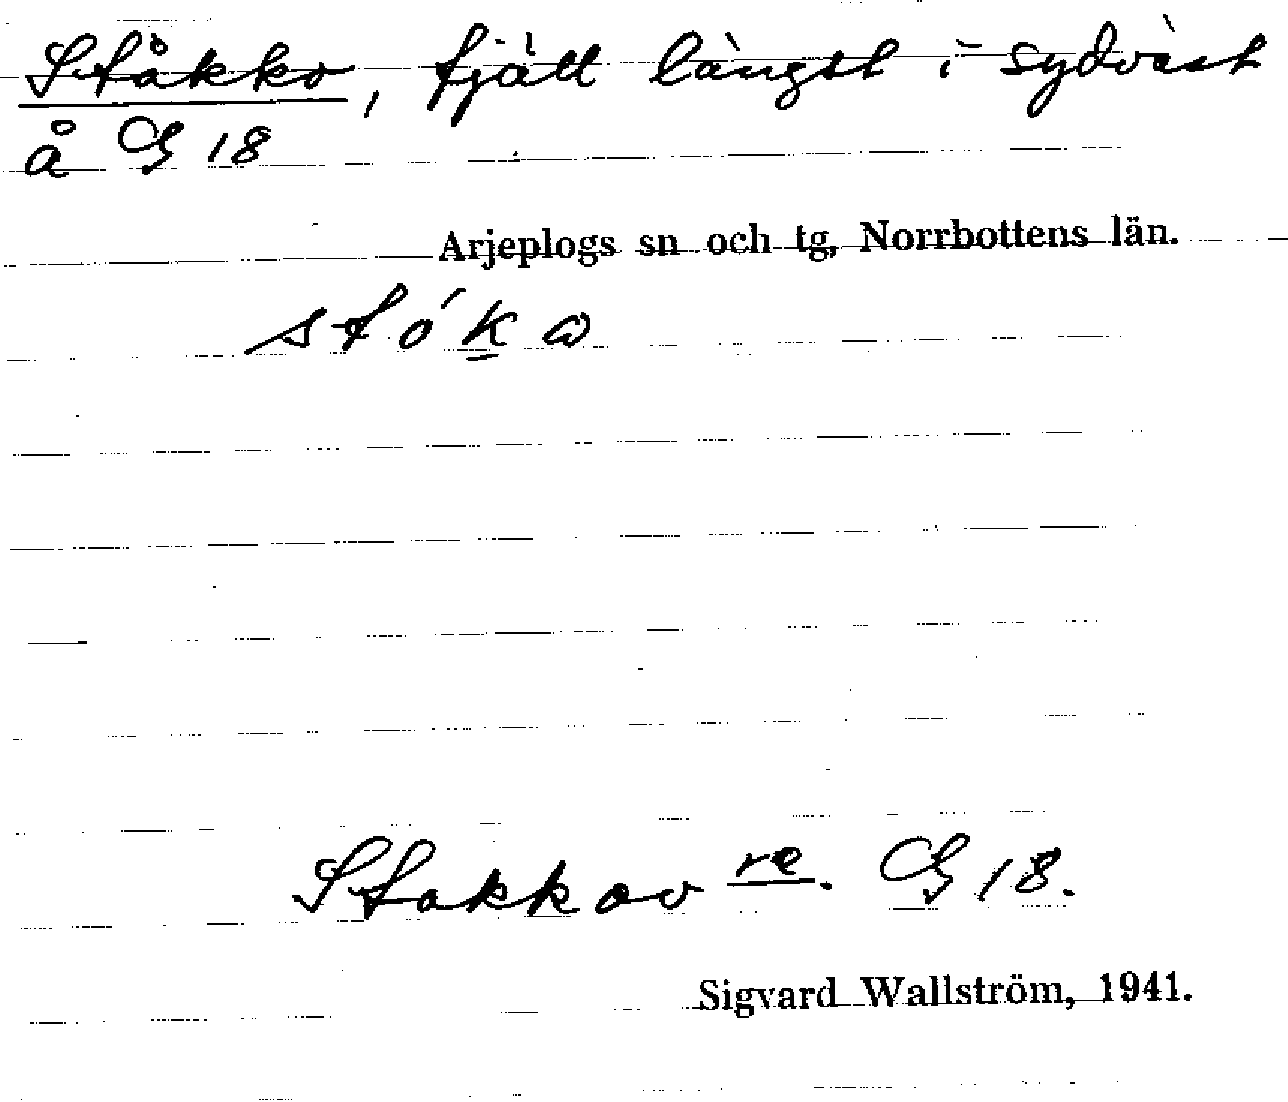 Ståkko, fjäll längst i sydväst
å G 18
Arjeplogs sn och tg, Norrbottens län.
stók̲ɷ
Stakkov re. G 18.
Sigvard Wallström, 1941.